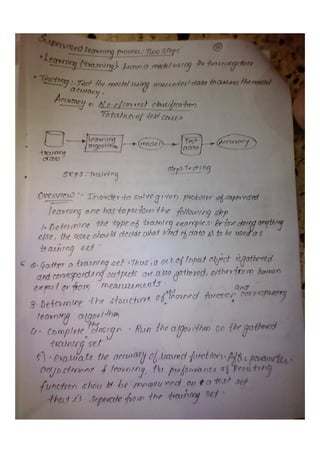 Supervised learning process: Two steps
• Learning (training):- Learn a model using the training data
• Testing:- Test the model using unseen test data to assess the model
accuracy.
Accuracy = No of correct classification
Total no of test cases
training data
learning algorithm
model
Test data
Accuracy
step 1: Training
step 2: Testing
Overview:- In order to solve given problem of supervised
learning one has to perform the following step
1. Determine the type of training examples: Before doing anything
else, the user should decide what kind of data is to be used as
training set.
2- Gather a training set. Thus, a set of input object is gathered
and corresponding outputs are also gathered, either from human
expert or from measurements.
3- Determine the structure of the learned function and corresponding
learning algorithm
4- Complete the design. Run the algorithm on the gathered
training set
5). Evaluate the accuracy of learned function. After parameter
adjustement & learning, the performance of resulting
function should be measured on a test set
that is seperate from the training set.